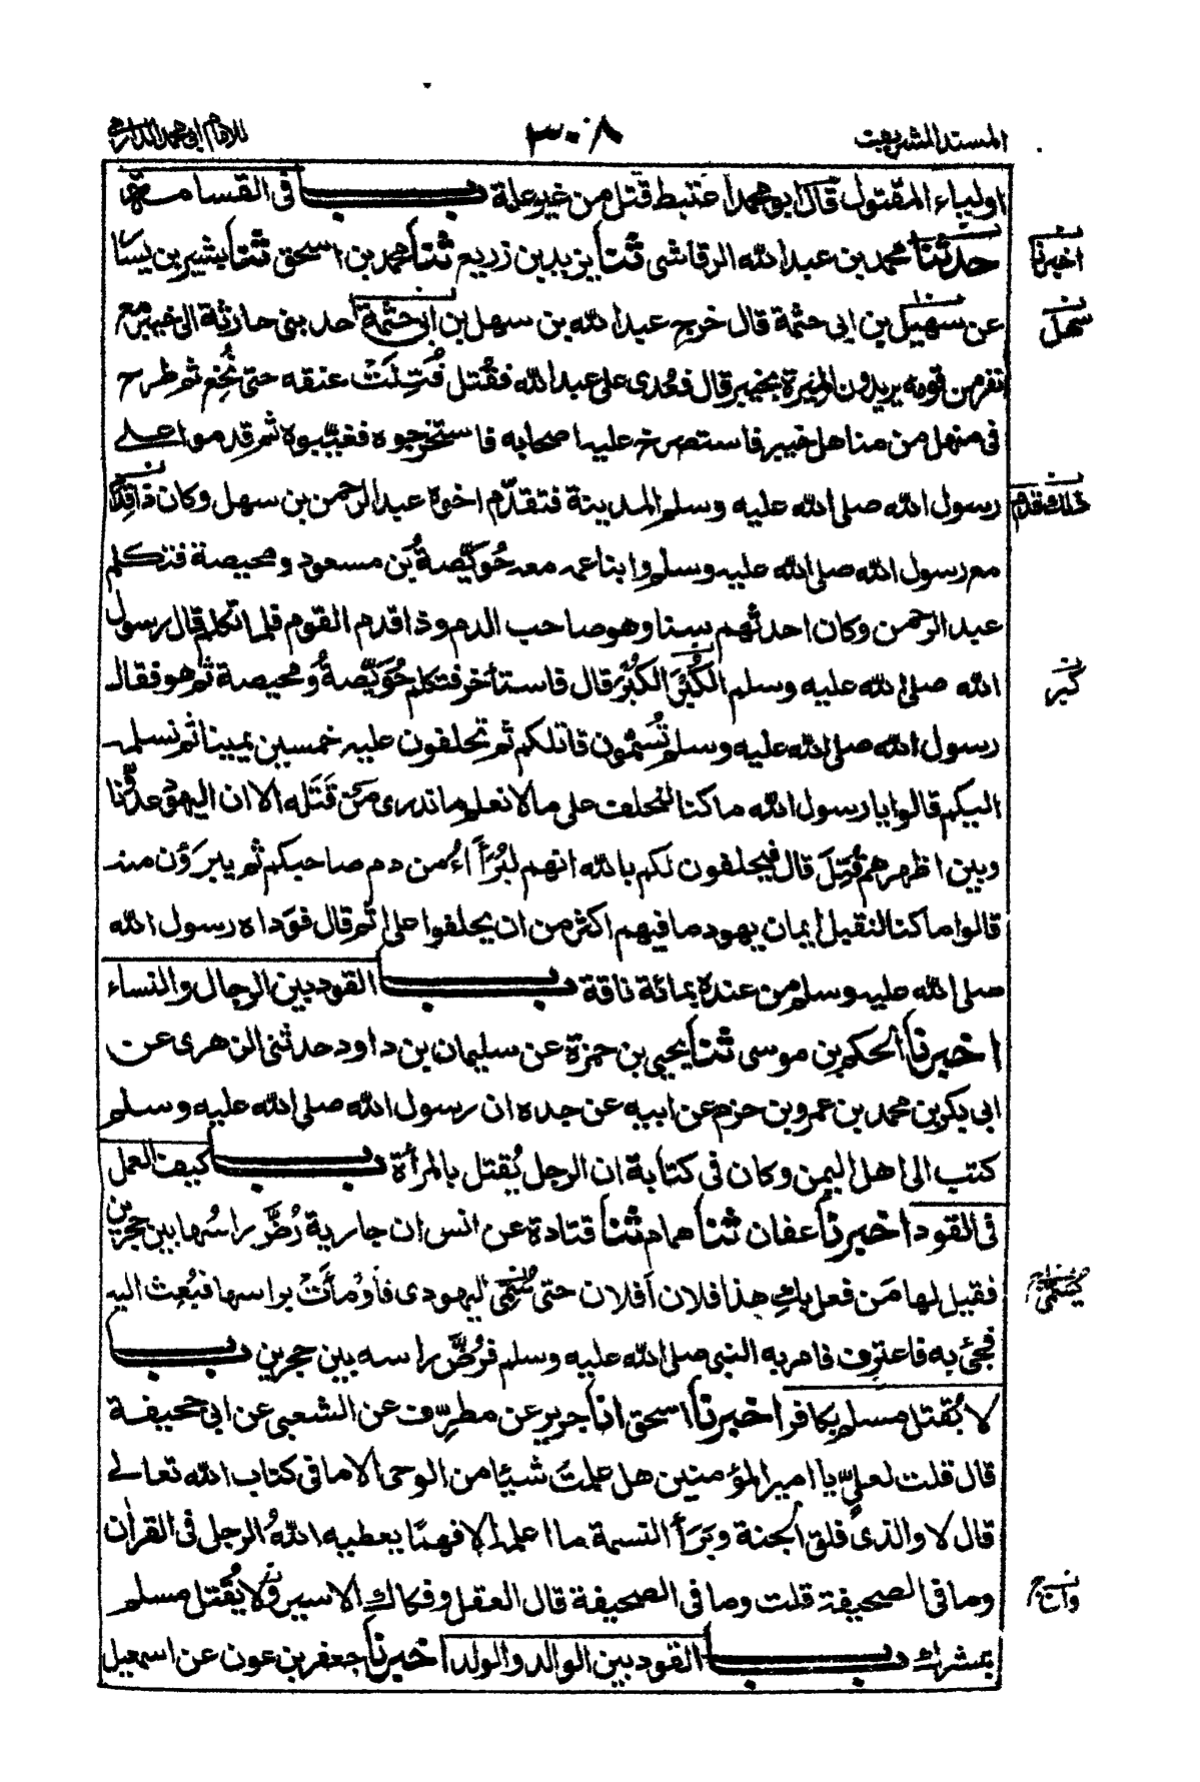 المسند الشريف
٣٠٨
للامام ابى محمد الدارمى
اولياء المقتول قال ابو محمد اعتبط قتل من غير علة باب فى القسامة
حدثنا محمد بن عبد الله الرقاشى ثنا يزيد بن زريع ثنا محمد بن اسحق ثنا بشير بن يسا
اخبرنا
عن سهيل بن ابى حثمة قال خرج عبد الله بن سهل بن ابى حثمة احد بنى حارثة الى خيبر مع
سهل
نفر من قومه يريدون الميرة بخيبر قال فعُدى على عبد الله فقُتل فُتِلَتْ عنقه حتى نُخِع ثم طرح
فى منهل من مناهل خيبر فاستصرخ عليه اصحابه فاستخرجوه فغيّبوه ثم قدموا على
رسول الله صلى الله عليه وسلم المدينة فتقدّم اخوه عبد الرحمن بن سهل وكان ذا قِدَم
ذلك وقدم
مع رسول الله صلى الله عليه وسلم وابنا عمه معه حُوَيِّصةُ بن مسعود ومحيصة فتكلم
عبد الرحمن وكان احدثهم سنا وهو صاحب الدم وذا قدم القوم فلما تكلم قال رسول
الله صلى الله عليه وسلم الكُبْرَ الكُبْرَ قال فاستأخر فتكلم حُوَيِّصةُ ومحيصة ثم هو فقال
كبر
رسول الله صلى الله عليه وسلم تُسَمّون قاتلكم ثم تحلفون عليه خمسين يمينا ثم نسلمه
اليكم قالوا يا رسول الله ما كنا لنحلف على ما لا نعلم ما ندرى من قَتَله الا ان اليهود عدوّنا
وبين اظهرهم قُتِلَ قال فيحلفون لكم بالله انهم لبُرَأَاءُ من دم صاحبكم ثم يبرَؤن منه
قالوا ما كنا لنقبل ايمان يهود ما فيهم اكثر من ان يحلفوا على اثم قال فوَداه رسول الله
صلى الله عليه وسلم من عنده بمائة ناقة باب القود بين الرجال والنساء
اخبرنا الحكم بن موسى ثنا يحيى بن حمزة عن سليمان بن داود حدثنى الزهرى عن
ابى بكر بن محمد بن عمرو بن حزم عن ابيه عن جده ان رسول الله صلى الله عليه وسلم
كتب الى اهل اليمن وكان فى كتابه ان الرجل يُقتل بالمرأة باب كيف العمل
فى القود اخبرنا عفان ثنا همام ثنا قتادة عن انس ان جارية رُضَّ راسُها بين حجرين
فقيل لها مَن فعل بكِ هذا فلان أفلان حتى سُمِّى اليهودى فأومأَتْ براسها فبُعِث اليه
فجئ به فاعترف فامر به النبى صلى الله عليه وسلم فرُضَّ راسه بين حجرين باب
لا يُقتل مسلم بكافر اخبرنا اسحق انا جرير عن مطرّف عن الشعبى عن ابى جحيفة
قال قلت لعلىّ يا امير المؤمنين هل علمتَ شيئا من الوحى الا ما فى كتاب الله تعالى
قال لا والذى فلق الحبة وبَرَأَ النسمة ما اعلمه الا فهمًا يعطيه اللهُ الرجل فى القران
وما فى الصحيفة قلت وما فى الصحيفة قال العقل وفكاك الاسير ولا يُقتل مسلم
وان
بمشرك باب القود بين الوالد والولد اخبرنا جعفر بن عون عن اسمعيل